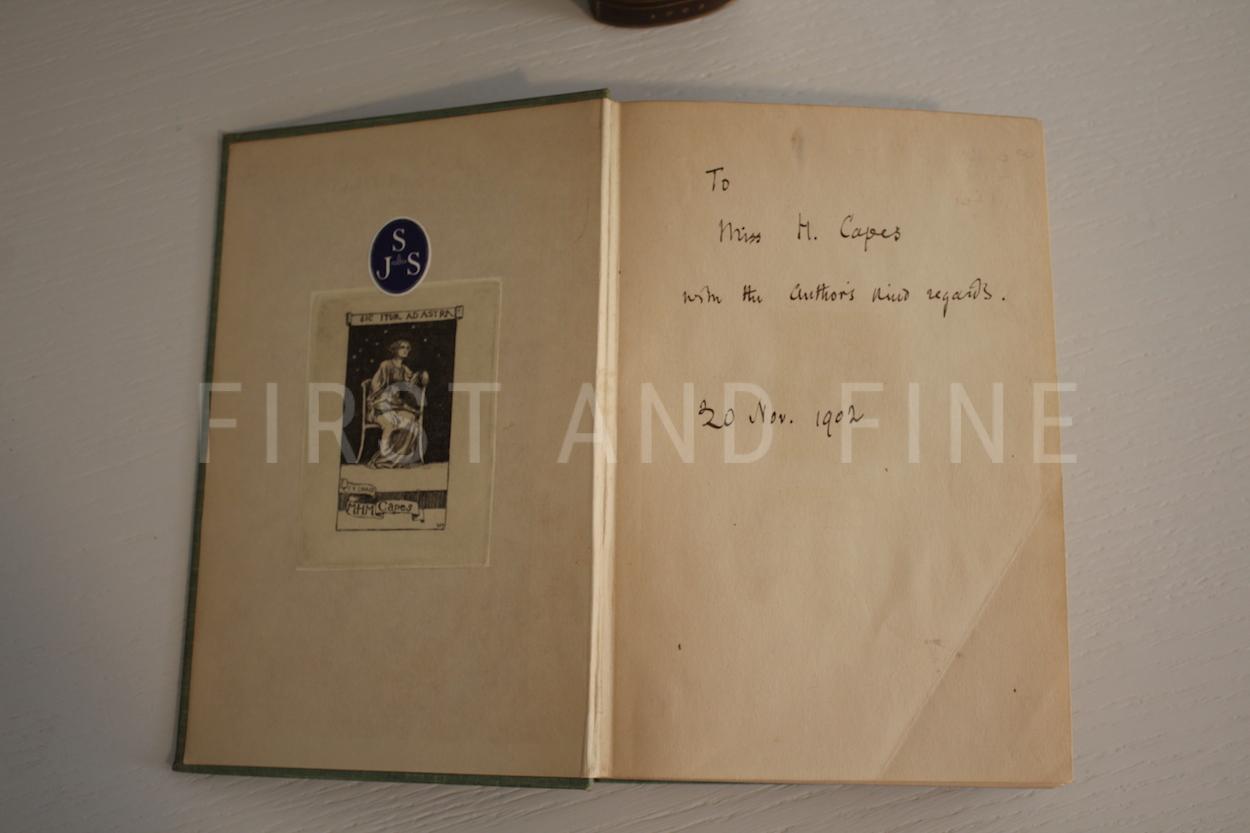 S
J S
SIC ITUR AD ASTRA
MHM Capes
To
Miss H. Capes
with the Author's kind regards.
20 Nov. 1902
FIRST AND FINE